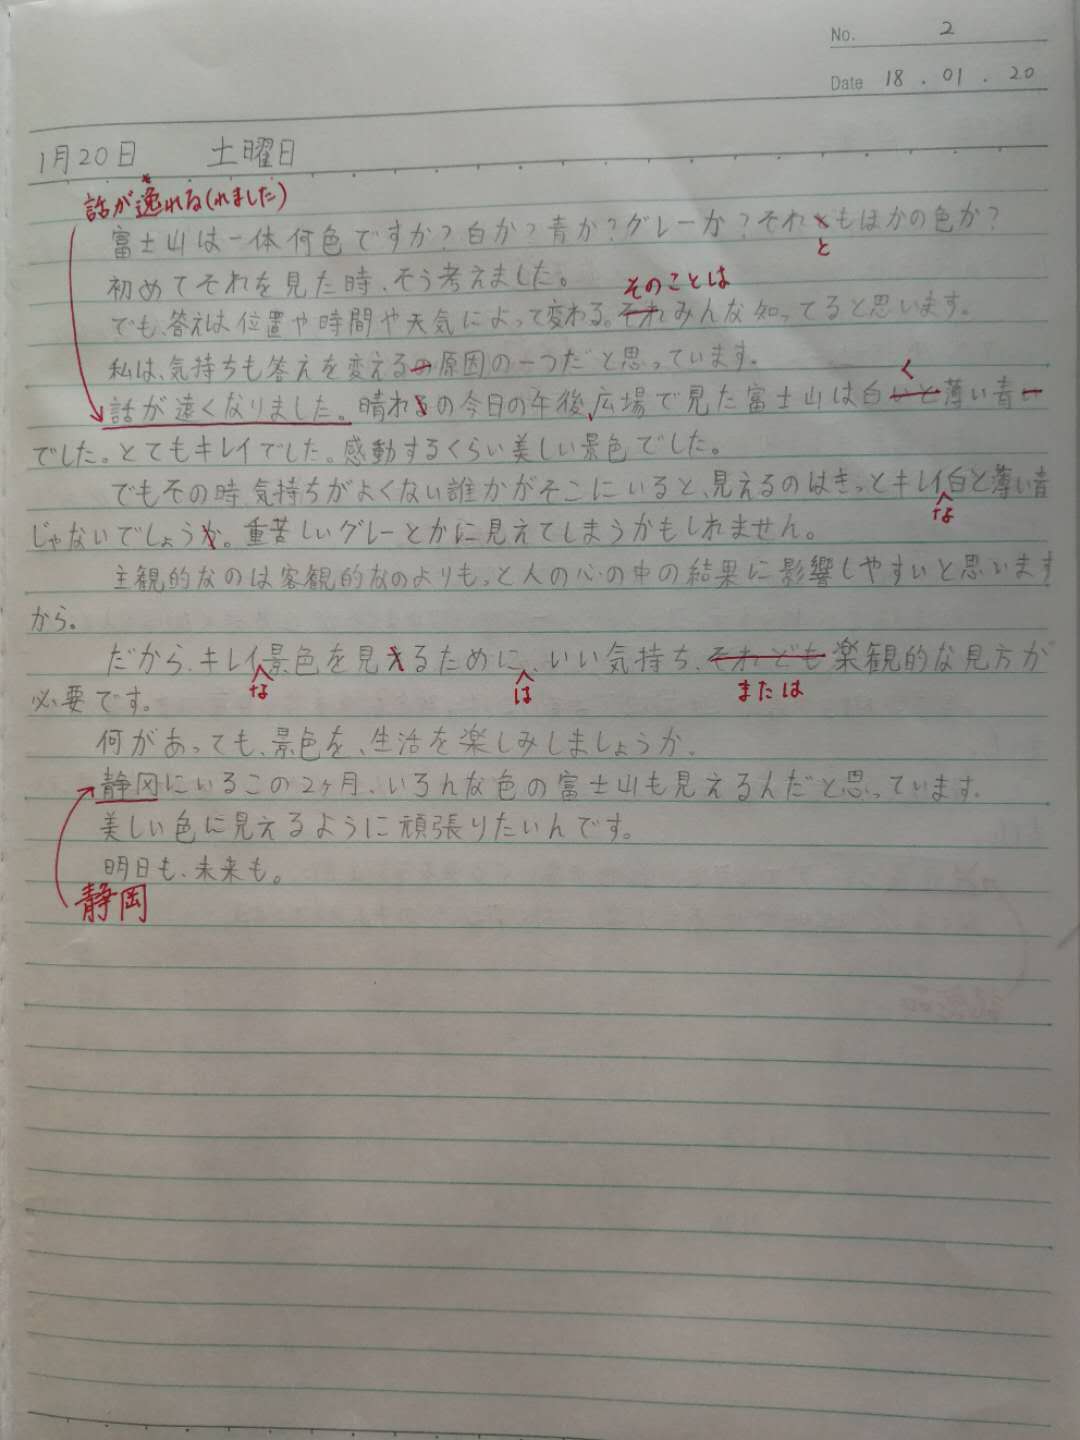 No. 2
Date 18 . 01 . 20
1月20日 土曜日
話が逸れる(れました)
富士山は一体何色ですか?白か?青か?グレーか?それともほかの色か?
と
初めてそれを見た時、そう考えました。
そのことは
でも、答えは位置や時間や天気によって変わる。それみんな知ってると思います。
私は、気持ちも答えを変えるの原因の一つだと思っています。
く
話が遠くなりました。晴れの今日の午後、広場で見た富士山は白いと薄い青い
でした。とてもキレイでした。感動するくらい美しい景色でした。
でもその時気持ちがよくない誰かがそこにいると、見えるのはきっとキレイ白と薄い青
な
じゃないでしょうか。重苦しいグレーとかに見えてしまうかもしれません。
主観的なのは客観的なのよりもっと人の心の中の結果に影響しやすいと思います
から。
だから、キレイ景色を見えるために、いい気持ち、それども楽観的な見方が
な は または
必要です。
何があっても、景色を、生活を楽しみしましょうか。
静冈にいるこの2ヶ月、いろんな色の富士山も見えるんだと思っています。
美しい色に見えるように頑張りたいんです。
明日も、未来も。
静岡